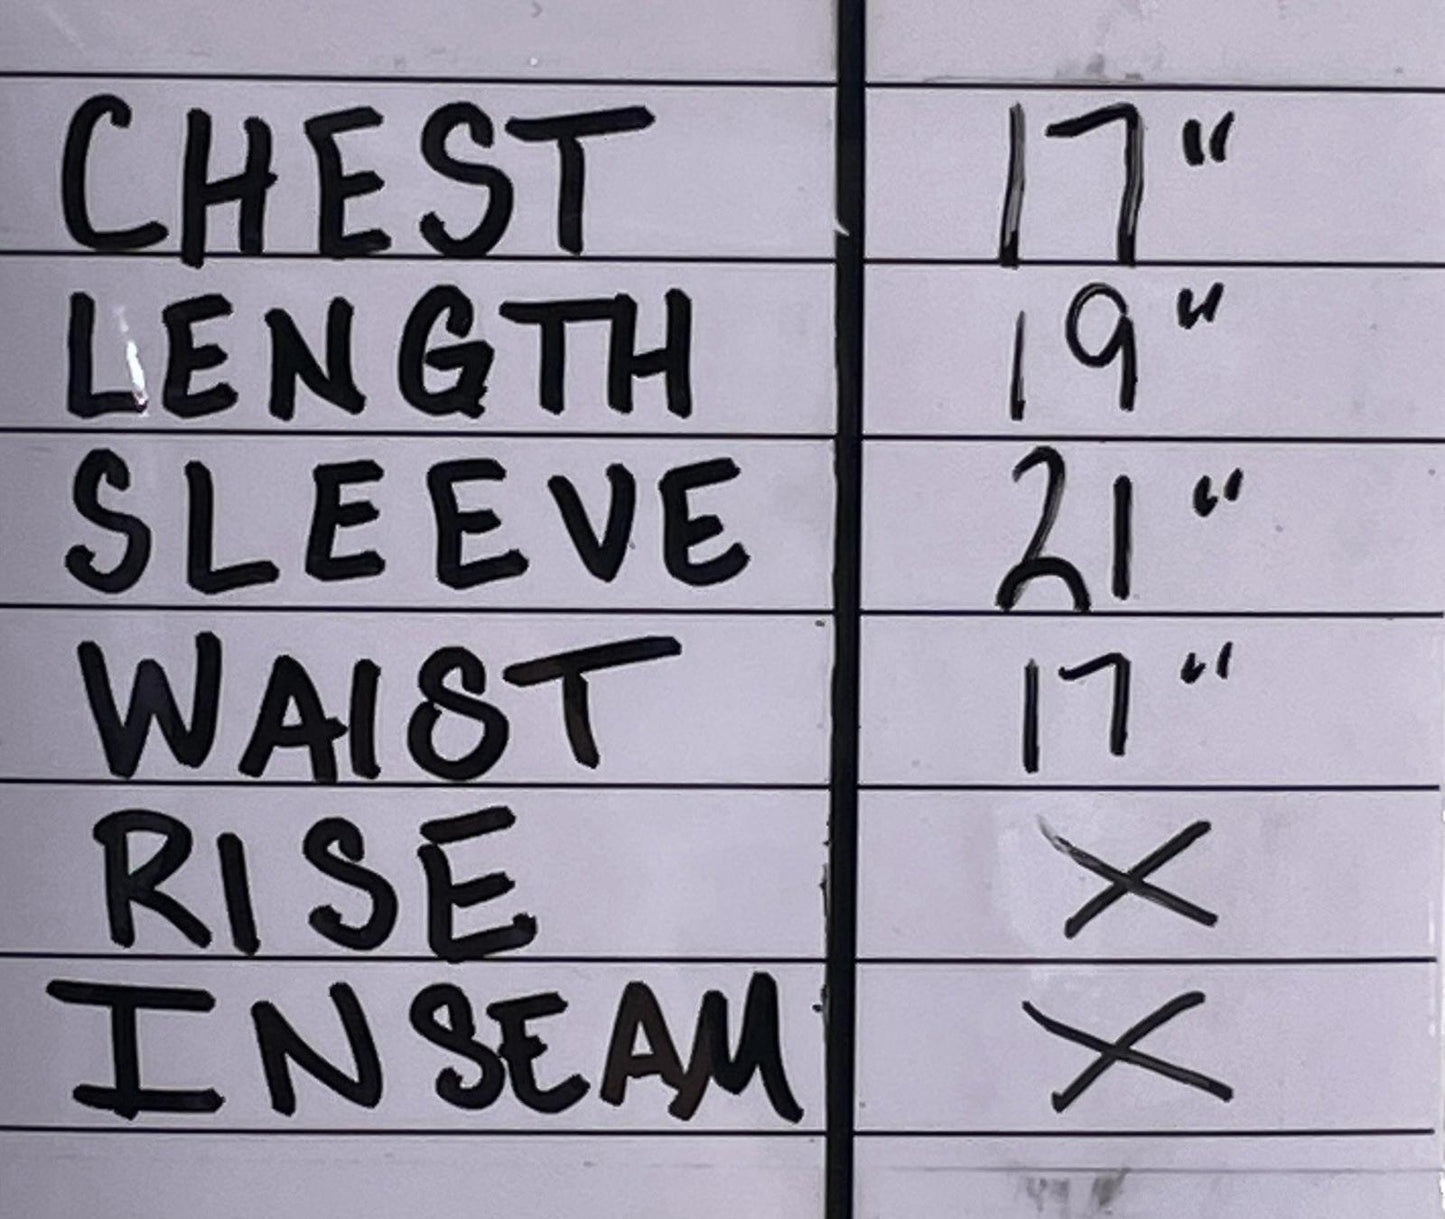 CHEST 17"
LENGTH 19"
SLEEVE 21"
WAIST 17"
RISE X
INSEAM X